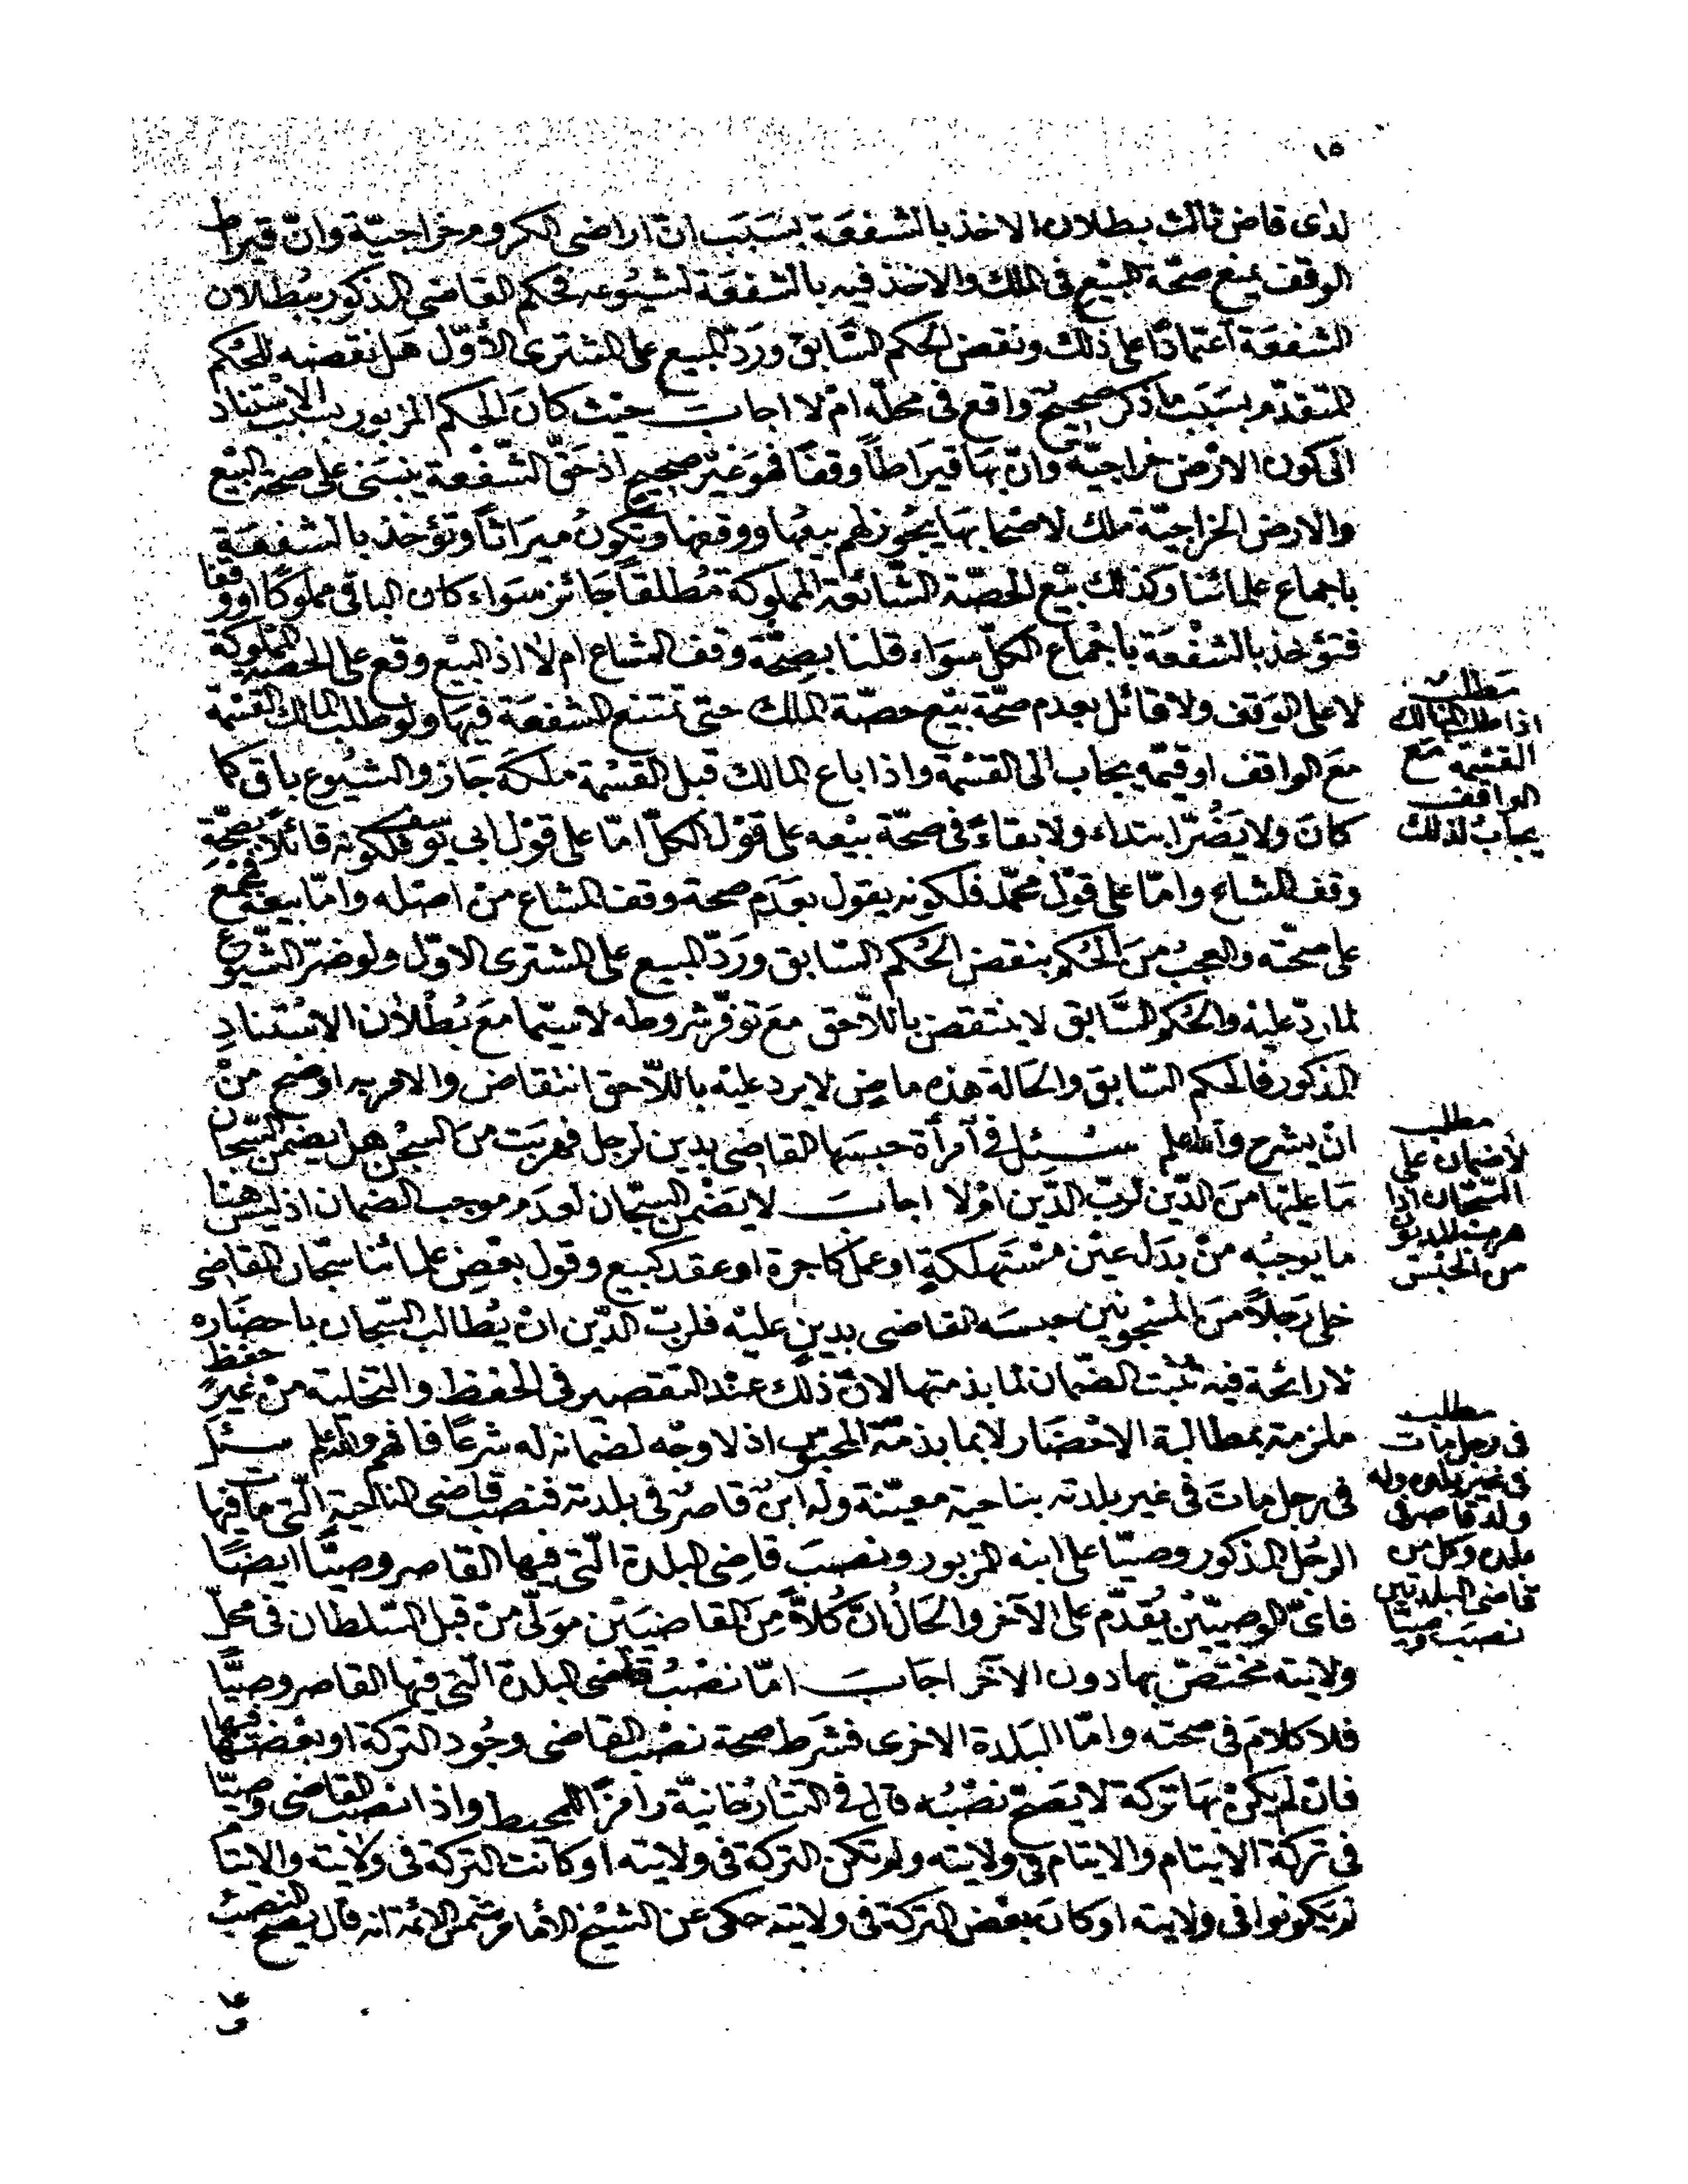 ١٥
لدى قاض ثالث بطلان الاخذ بالشفعة بسبب ان اراضى الكروم خراجية وان قيراط
الوقف يمنع صحة البيع فى الملك والاخذ فيه بالشفعة لشيوعه فحكم القاضى المذكور ببطلان
الشفعة اعتمادًا على ذلك ونقض الحكم السابق ورد المبيع على المشترى الأول هل نقضه للحكم
المتقدم بسبب ما ذكر صحيح واقع فى محله ام لا اجاب حيث كان الحكم المزبور بسبب الاستناد
الى كون الارض خراجية وان بها قيراطًا وقفًا فهو غير صحيح اذ حق الشفعة ينبنى على صحة البيع
والارض الخراجية ملك لاصحابها يجوز لهم بيعها ووقفها وتكون ميراثًا وتؤخذ بالشفعة
باجماع علمائنا وكذلك بيع الحصة الشائعة المملوكة مطلقًا جائز سواء كان الباقى مملوكًا او وقفا
فتؤخذ بالشفعة باجماع الكل سواء قلنا بصحة وقف المشاع ام لا اذ البيع وقع على الحصة المملوكة
لا على الوقف ولا قائل بعدم صحة بيع حصة الملك حتى تمتنع الشفعة فيها ولو طلب المالك القسمة
مع الواقف او قيمه يجاب الى القسمة واذا باع المالك قبل القسمة ملكه جاز والشيوع باق كما
كان ولا يضر ابتداء ولا بقاءً فى صحة بيعه على قول الكل اما على قول ابى يوسف فلكونه قائلًا بصحة
وقف المشاع واما على قول محمد فلكونه يقول بعدم صحة وقف المشاع من اصله واما بيعه فمجمع
على صحته والعجب من الحكم بنقض الحكم السابق ورد المبيع على المشترى الاول ولو ضر الشيوع
لما رد عليه والحكم السابق لا ينتقض باللاحق مع توفر شروطه لا سيما مع بطلان الاستناد
المذكور فالحكم السابق والحالة هذه ماض لا يرد عليه باللاحق انتقاض والامر به اوضح من
ان يشرح والله اعلم سئل فى امرأة حبسها القاضى بدين لرجل فهربت من السجن هل يضمن السجان
ما عليها من الدين لرب الدين ام لا اجاب لا يضمن السجان لعدم موجب الضمان اذ ليس هنا
ما يوجبه من بدل عين مستهلكة او عمل كاجرة او عقد كبيع وقول بعض علمائنا سجان القاضى
خلى رجلًا من المسجونين حبسه القاضى بدين عليه فلرب الدين ان يطالب السجان باحضاره
لا رائحة فيه تثبت الضمان لما بذمتها لان ذلك عند التقصير فى الحفظ والتخلية من غير حفظ
ملزمة بمطالبة الاحضار لا بما بذمة المحبوس اذ لا وجه لضمانه له شرعًا فافهم والله اعلم سئل
فى رجل مات فى غير بلدته بناحية معينة وله ابن قاصر فى بلدته فنصب قاضى الناحية التى مات فيها
الرجل المذكور وصيًا على ابنه المزبور ونصب قاضى البلدة التى فيها القاصر وصيًا ايضًا
فاىّ الوصيين يقدم على الآخر والحال ان كلًا من القاضيين مولّى من قبل السلطان فى محل
ولايته مختص بها دون الآخر اجاب اما نصب قاضى البلدة التى فيها القاصر وصيًا
فلا كلام فى صحته واما البلدة الاخرى فشرط صحة نصب القاضى وجود التركة او بعضها فيها
فان لم يكن بها تركة لا يصح نصبه قال فى التتارخانية رامزًا للمحيط واذا نصب القاضى وصيًا
فى تركة الايتام والايتام فى ولايته ولم تكن التركة فى ولايته او كانت التركة فى ولايته والايتام
لم يكونوا فى ولايته او كان بعض التركة فى ولايته حكى عن الشيخ الامام شمس الائمة انه قال يصح النصب
مطلب
اذا طلب المالك
القسمة مع
الواقف
يجاب لذلك
مطلب
لا ضمان على
السجان اذا
هربت المديونة
من الحبس
مطلب
فى رجل مات
فى غير بلده وله
ولد قاصر فى
بلده وكل من
قاضى البلدتين
نصب وصيًا